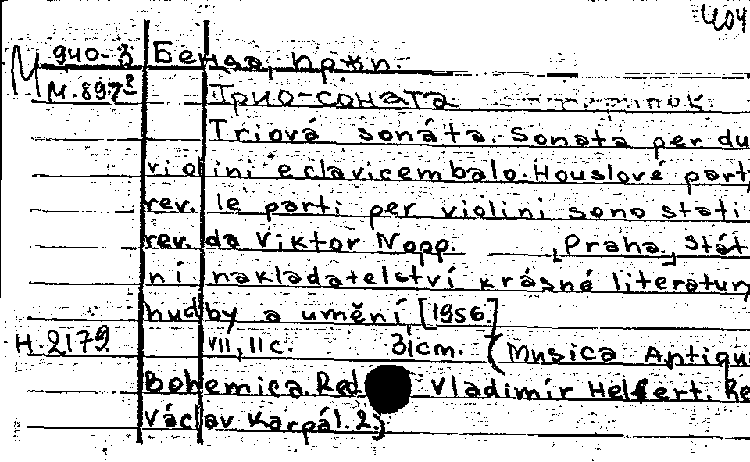 404
М 940-3 Бенда, Иржи.
М.897² Трио-соната
Triová sonáta. Sonata per du
violini e clavicembalo. Houslové party
rev. le parti per violini sono stati
rev. da Viktor Nopp. [Praha], Stát
ní nakladatelství krásné literatury
hudby a umění, [1956]
Н.2179 VII, 11 с. 31 cm. (Musica Antiqua
Bohemica. Red. Vladimír Helfert. Re
Václav Kaprál. 2.)